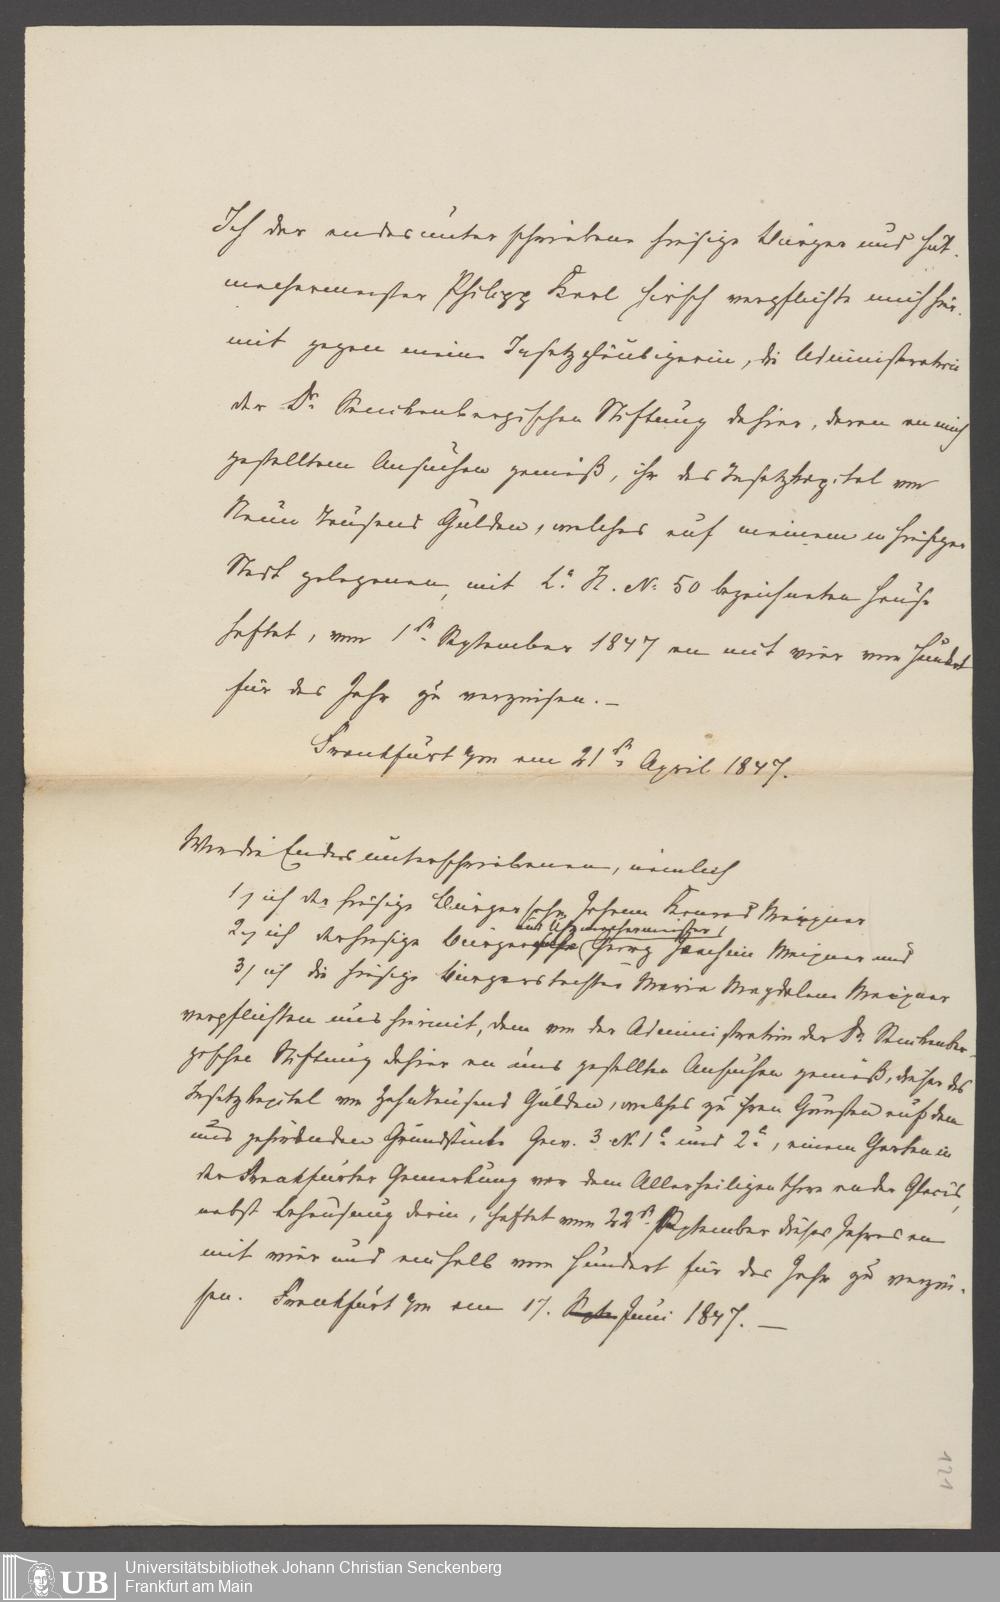 Ich der endesunterschriebene hiesige Bürger und Hut-
machermeister Philipp Karl Hirsch verpflichte mich hier-
mit gegen meine Insatzgläubigerin, die Administration
der Dr. Senckenbergischen Stiftung dahier, deren an mich
gestelltem Ansuchen gemäß, ihr das Insatzkapital von
Neun Tausend Gulden, welches auf meinem in hiesiger
Stadt gelegenen, mit Lª. H. No. 50 bezeichneten Hause
haftet, vom 1n. September 1847 an mit vier vom Hundert
für das Jahr zu verzinsen. –
Frankfurt am 21n. April 1847.
Wir die Endesunterschriebenen, nämlich
1, ich der hiesige Bürgersohn Johann Konrad Meixner
und Uhrmachermeister,
2, ich der hiesige Bürger Georg Joachim Meixner und
3, ich die hiesige Bürgerstochter Maria Magdalena Meixner
verpflichten uns hiermit, dem von der Administration der Dr. Senckenber-
gischen Stiftung dahier an uns gestellten Ansuchen gemäß, dieser das
Insatzkapital von Zehntausend Gulden, welches zu ihren Gunsten auf dem
uns gehörenden Grundstücke Gew. 3 No. 1 und 2, einem Garten in
der Frankfurter Gemarkung vor dem Allerheiligenthore an der Glacis,
nebst Behausung darin, haftet vom 22n. September dieses Jahres an
mit vier und einhalb vom Hundert für das Jahr zu verzin-
sen. Frankfurt am 17. Juni 1847. –
121
UB
Universitätsbibliothek Johann Christian Senckenberg
Frankfurt am Main